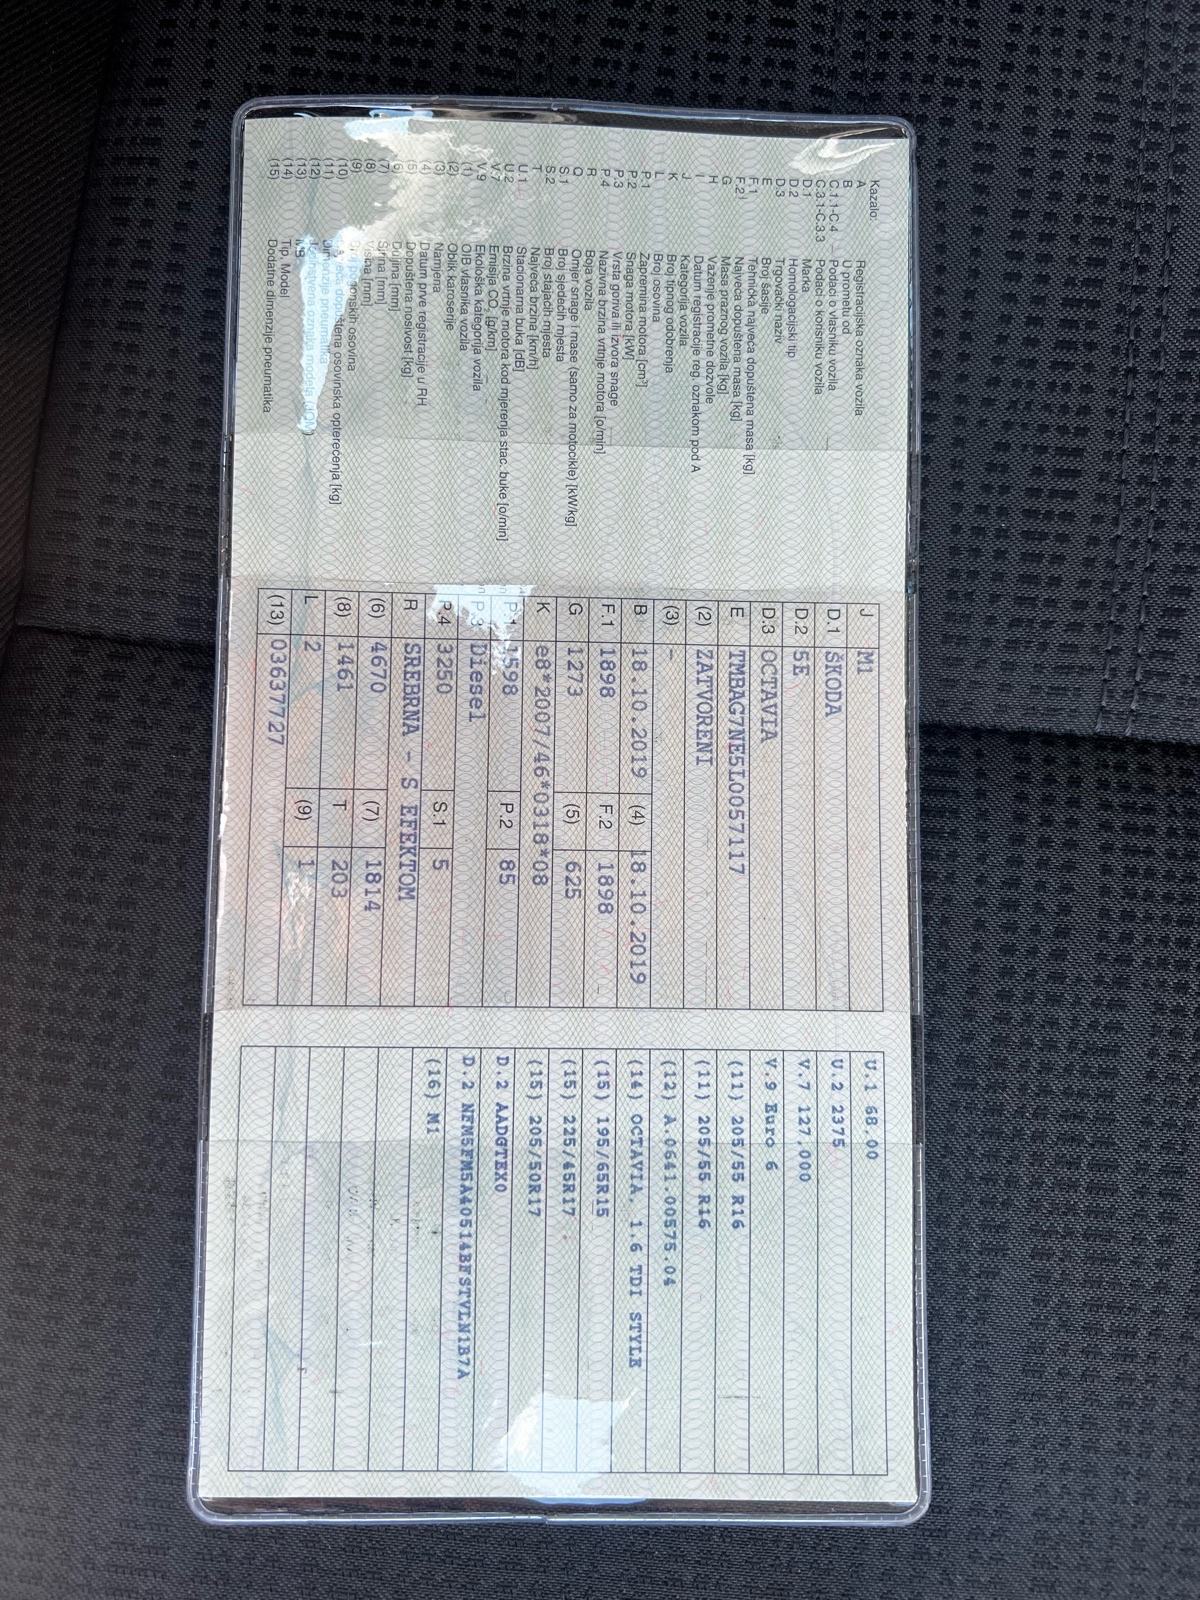 Kazalo:
A Registracijska oznaka vozila
B U prometu od
C.1.1-C.4 Podaci o vlasniku vozila
C.3.1-C.3.3 Podaci o korisniku vozila
D.1 Marka
D.2 Homologacijski tip
D.3 Trgovački naziv
E Broj šasije
F.1 Tehnička najveća dopuštena masa [kg]
F.2 Najveća dopuštena masa [kg]
G Masa praznog vozila [kg]
H Važenje prometne dozvole
I Datum registracije reg. oznakom pod A
J Kategorija vozila
K Broj tipnog odobrenja
L Broj osovina
P.1 Zapremina motora [cm³]
P.2 Snaga motora [kW]
P.3 Vrsta goriva ili izvora snage
P.4 Nazivna brzina vrtnje motora [o/min]
R Boja vozila
Q Omjer snage i mase (samo za motocikle) [kW/kg]
S.1 Broj sjedećih mjesta
S.2 Broj stajaćih mjesta
T Najveća brzina [km/h]
U.1 Stacionarna buka [dB]
U.2 Brzina vrtnje motora kod mjerenja stac. buke [o/min]
V.7 Emisija CO₂ [g/km]
V.9 Ekološka kategorija vozila
(1) OIB vlasnika vozila
(2) Oblik karoserije
(3) Namjena
(4) Datum prve registracije u RH
(5) Dopuštena nosivost [kg]
(6) Dužina [mm]
(7) Širina [mm]
(8) Visina [mm]
(9) Broj pogonskih osovina
(10) dopuštena osovinska opterećenja [kg]
(11) Dimenzije pneumatika
(12) oznaka modela
(13) MB
(14) Tip, Model
(15) Dodatne dimenzije pneumatika
J M1
D.1 ŠKODA
D.2 5E
D.3 OCTAVIA
E TMBAG7NE5L0057117
(2) ZATVORENI
(3) -
B 18.10.2019 (4) 18.10.2019
F.1 1898 F.2 1898
G 1273 (5) 625
K e8*2007/46*0318*08
P.1 1598 P.2 85
P.3 Diesel
P.4 3250 S.1 5
R SREBRNA - S EFEKTOM
(6) 4670 (7) 1814
(8) 1461 T 203
L 2 (9) 1
(13) 03637727
U.1 68.00
U.2 2375
V.7 127.000
V.9 Euro 6
(11) 205/55 R16
(11) 205/55 R16
(12) A.0641.00575.04
(14) OCTAVIA. 1.6 TDI STYLE
(15) 195/65R15
(15) 225/45R17
(15) 205/50R17
D.2 AADGTEX0
D.2 NFM5FM5A40514BFSTVLN1B7A
(16) M1